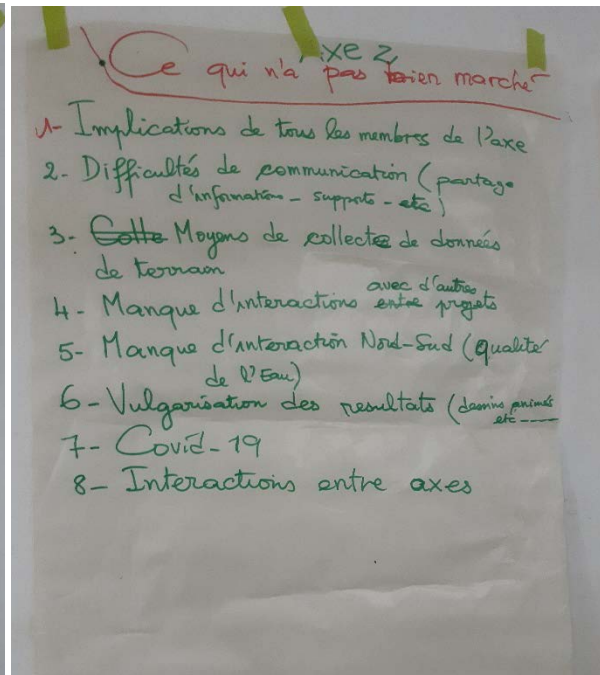 Axe 2
Ce qui n'a pas bien marché
1- Implications de tous les membres de l'axe
2- Difficultés de communication (partage
d'information - supports - etc)
3- Moyens de collecte de données
de terrain
4- Manque d'interactions avec d'autres projets
5- Manque d'interaction Nord-Sud (qualité
de l'Eau)
6- Vulgarisation des resultats (dessins animés
etc ----
7- Covid-19
8- Interactions entre axes